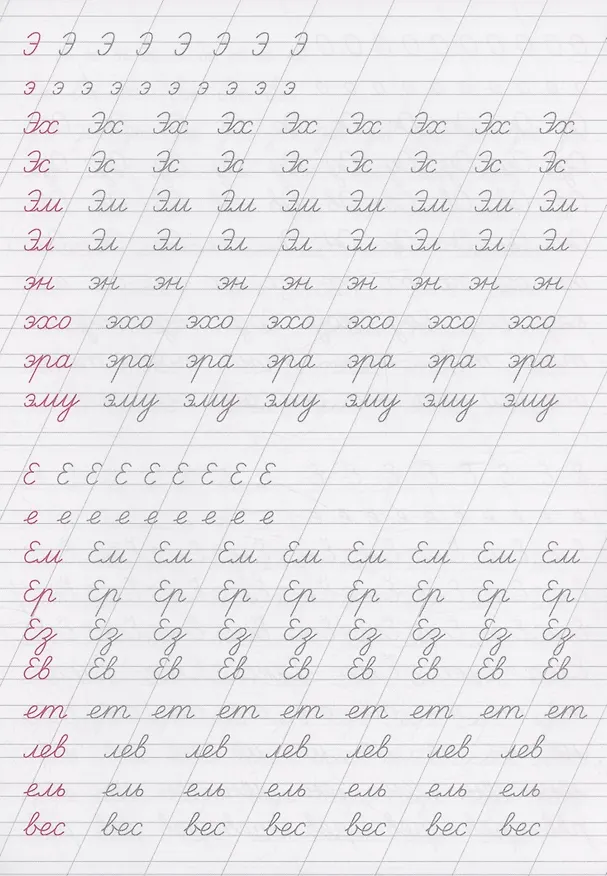 Э Э Э Э Э Э Э Э
э э э э э э э э э э
Эх Эх Эх Эх Эх Эх Эх Эх Эх
Эс Эс Эс Эс Эс Эс Эс Эс Эс
Эм Эм Эм Эм Эм Эм Эм Эм Эм
Эл Эл Эл Эл Эл Эл Эл Эл Эл
эн эн эн эн эн эн эн эн эн
эхо эхо эхо эхо эхо эхо эхо
эра эра эра эра эра эра эра
эму эму эму эму эму эму эму
Е Е Е Е Е Е Е Е Е
е е е е е е е е е
Ем Ем Ем Ем Ем Ем Ем Ем Ем
Ер Ер Ер Ер Ер Ер Ер Ер Ер
Ез Ез Ез Ез Ез Ез Ез Ез Ез
Ев Ев Ев Ев Ев Ев Ев Ев Ев
ет ет ет ет ет ет ет ет ет
лев лев лев лев лев лев лев
ель ель ель ель ель ель ель
вес вес вес вес вес вес вес